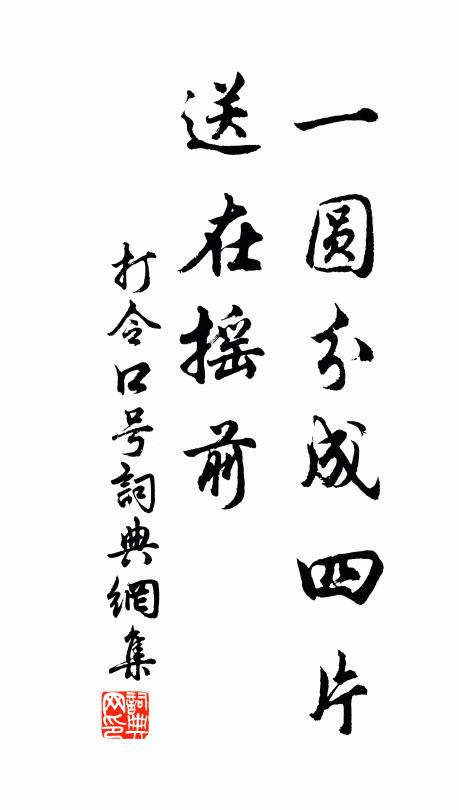 一圆分成四片
送在摇前
打令口号詞典網集
詞典网印